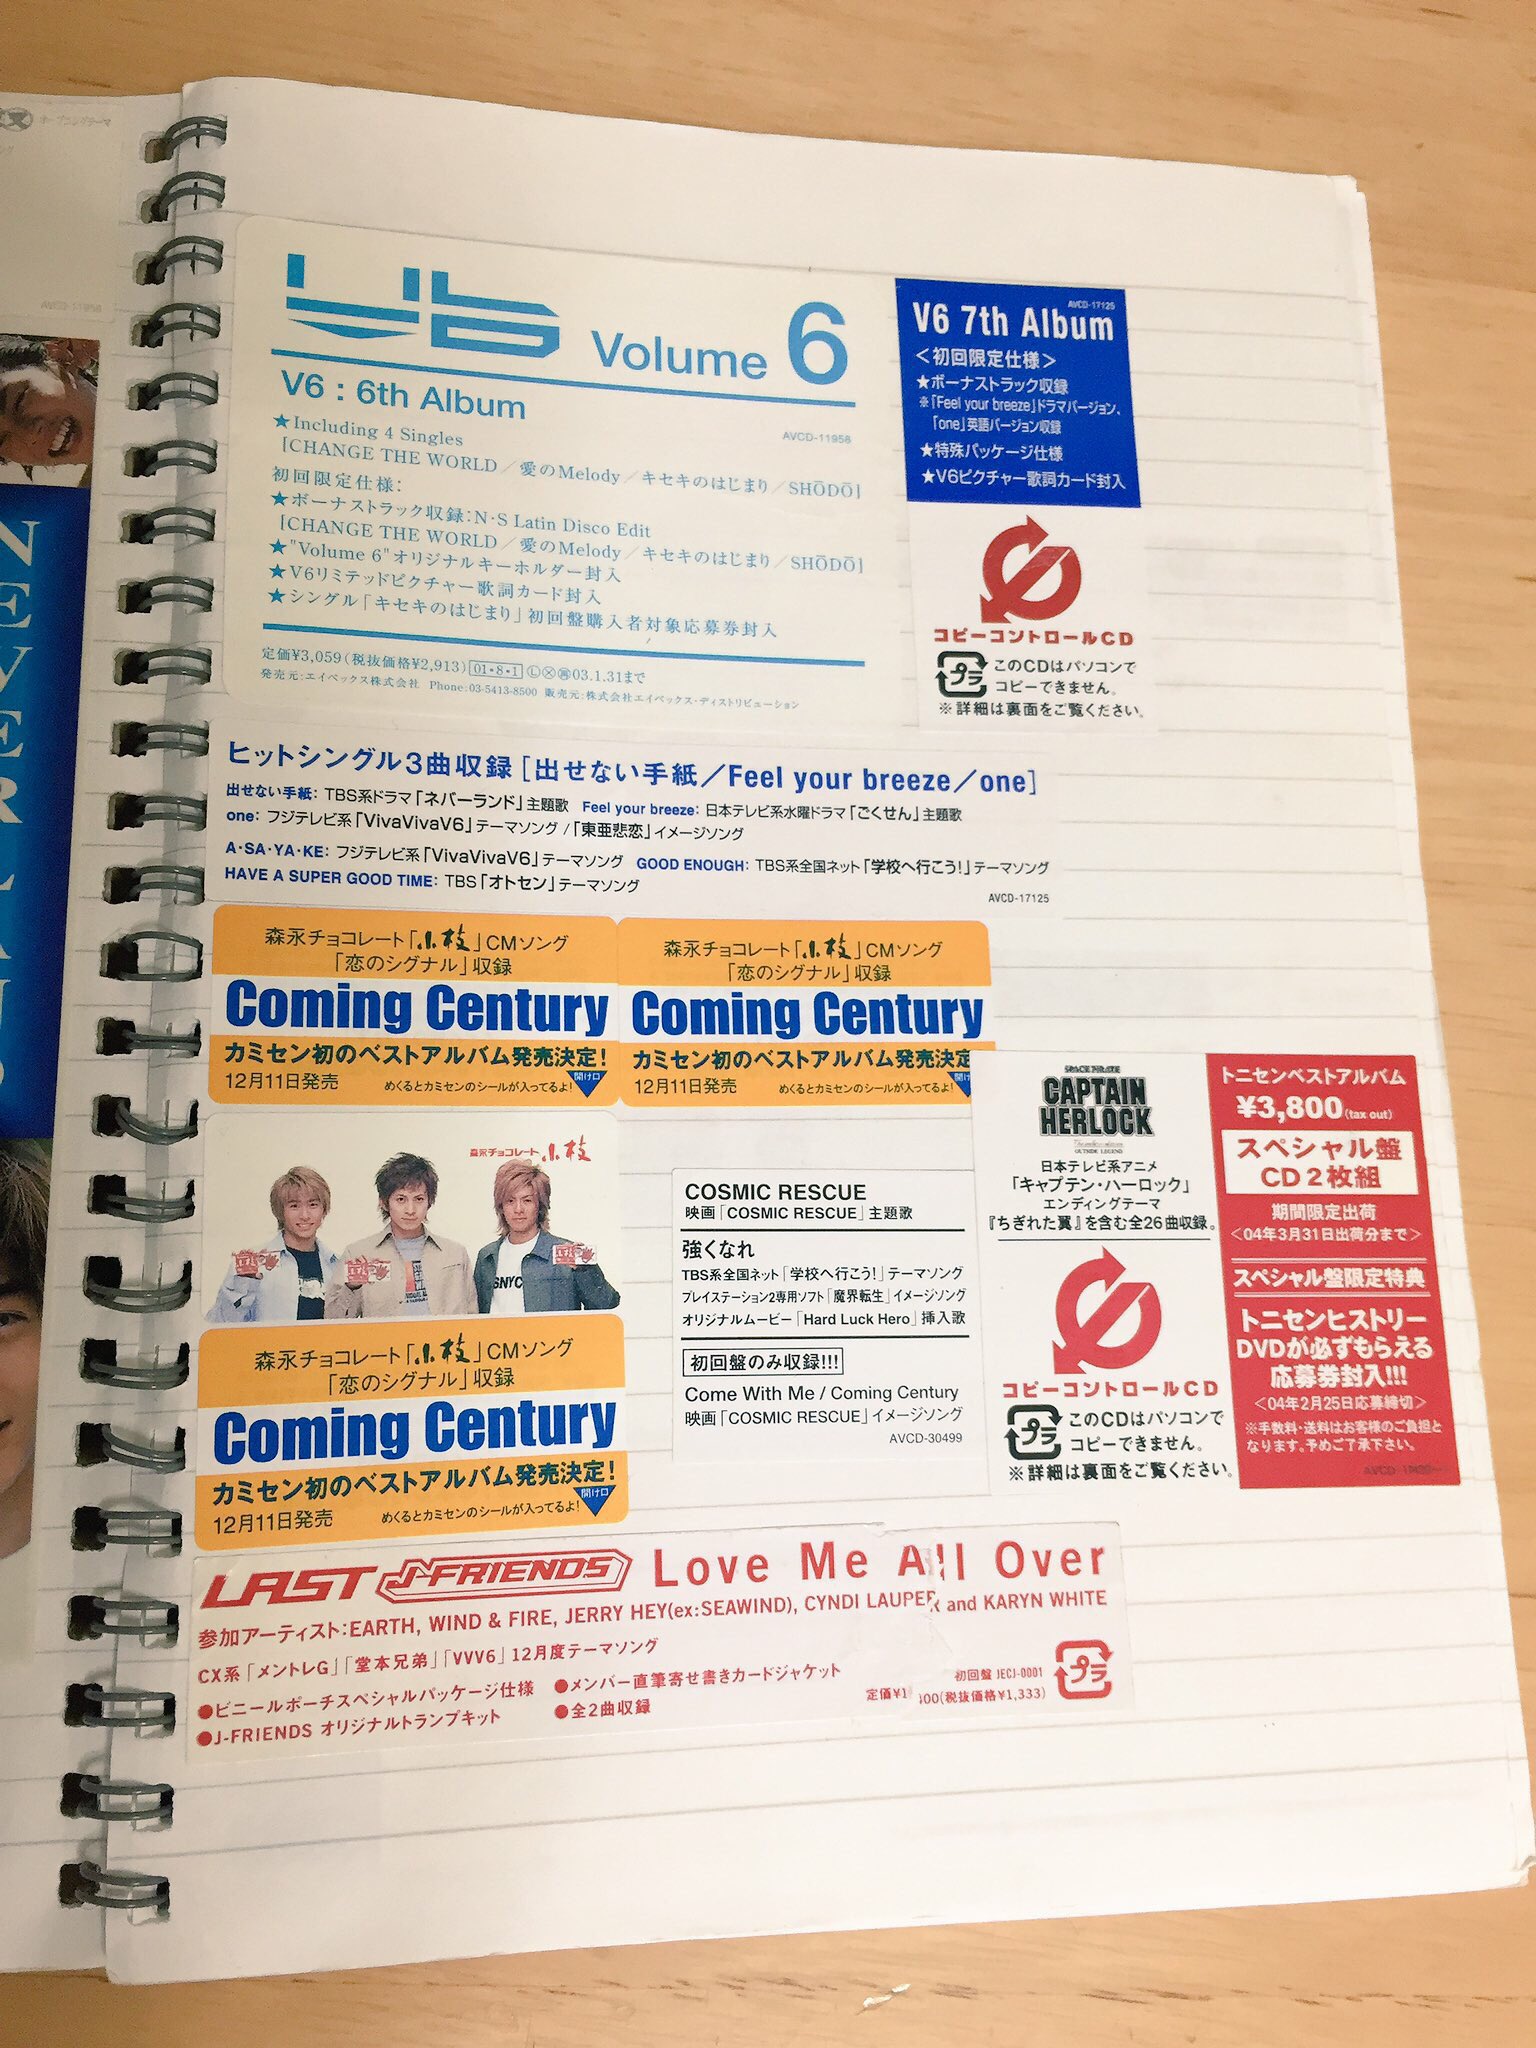 オープニングテーマ
AVCD-11958
NEVERLAND
V6 Volume 6
V6 : 6th Album
AVCD-11958
★Including 4 Singles
「CHANGE THE WORLD／愛のMelody／キセキのはじまり／SHŌDŌ」
初回限定仕様:
★ボーナストラック収録:N・S Latin Disco Edit
「CHANGE THE WORLD／愛のMelody／キセキのはじまり／SHŌDŌ」
★"Volume 6"オリジナルキーホルダー封入
★V6リミテッドピクチャー歌詞カード封入
★シングル「キセキのはじまり」初回盤購入者対象応募券封入
定価¥3,059(税抜価格¥2,913) 01・8・1 Ⓛ 03.1.31まで
発売元:エイベックス株式会社 Phone:03-5413-8500 販売元:株式会社エイベックス・ディストリビューション
AVCD-17125
V6 7th Album
＜初回限定仕様＞
★ボーナストラック収録
※「Feel your breeze」ドラマバージョン、
「one」英語バージョン収録
★特殊パッケージ仕様
★V6ピクチャー歌詞カード封入
コピーコントロールCD
プラ
このCDはパソコンで
コピーできません。
※詳細は裏面をご覧ください。
ヒットシングル3曲収録［出せない手紙／Feel your breeze／one］
出せない手紙: TBS系ドラマ「ネバーランド」主題歌 Feel your breeze: 日本テレビ系水曜ドラマ「ごくせん」主題歌
one: フジテレビ系「VivaVivaV6」テーマソング /「東亜悲恋」イメージソング
A・SA・YA・KE: フジテレビ系「VivaVivaV6」テーマソング GOOD ENOUGH: TBS系全国ネット「学校へ行こう!」テーマソング
HAVE A SUPER GOOD TIME: TBS「オトセン」テーマソング
AVCD-17125
森永チョコレート「小枝」CMソング
「恋のシグナル」収録
Coming Century
カミセン初のベストアルバム発売決定!
12月11日発売 めくるとカミセンのシールが入ってるよ! 開け口
森永チョコレート「小枝」CMソング
「恋のシグナル」収録
Coming Century
カミセン初のベストアルバム発売決定
12月11日発売 めくるとカミセンのシールが入ってるよ! 開け
森永チョコレート 小枝
SNYC
森永チョコレート「小枝」CMソング
「恋のシグナル」収録
Coming Century
カミセン初のベストアルバム発売決定!
12月11日発売 めくるとカミセンのシールが入ってるよ! 開け口
COSMIC RESCUE
映画「COSMIC RESCUE」主題歌
強くなれ
TBS系全国ネット「学校へ行こう!」テーマソング
プレイステーション2専用ソフト「魔界転生」イメージソング
オリジナルムービー「Hard Luck Hero」挿入歌
初回盤のみ収録!!!
Come With Me / Coming Century
映画「COSMIC RESCUE」イメージソング
AVCD-30499
SPACE PIRATE
CAPTAIN
HERLOCK
OUTSIDE LEGEND
日本テレビ系アニメ
「キャプテン・ハーロック」
エンディングテーマ
『ちぎれた翼』を含む全26曲収録。
コピーコントロールCD
プラ
このCDはパソコンで
コピーできません。
※詳細は裏面をご覧ください。
トニセンベストアルバム
¥3,800(tax out)
スペシャル盤
CD2枚組
期間限定出荷
＜04年3月31日出荷分まで＞
スペシャル盤限定特典
トニセンヒストリー
DVDが必ずもらえる
応募券封入!!!
＜04年2月25日応募締切＞
※手数料・送料はお客様のご負担と
なります。予めご了承下さい。
LAST J-FRIENDS Love Me All Over
参加アーティスト:EARTH, WIND & FIRE, JERRY HEY(ex:SEAWIND), CYNDI LAUPER and KARYN WHITE
CX系「メントレG」「堂本兄弟」「VVV6」12月度テーマソング
●ビニールポーチスペシャルパッケージ仕様 ●メンバー直筆寄せ書きカードジャケット
●J-FRIENDS オリジナルトランプキット ●全2曲収録
初回盤 JECJ-0001
定価¥1 00(税抜価格¥1,333)
プラ